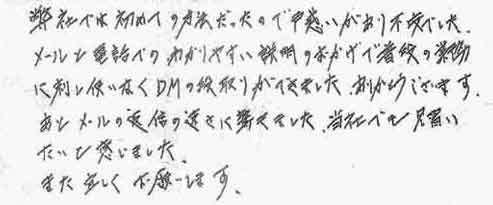 弊社では初めての方法だったので戸惑いがあり不安でした。
メールと電話でのわかりやすい説明のおかげで普段の業務
に差し使いなくDMの段取りができました。ありがとうございます。
あとメールの返信の速さに驚きました。当社でも見習い
たいと感じました。
また宜しくお願いします。